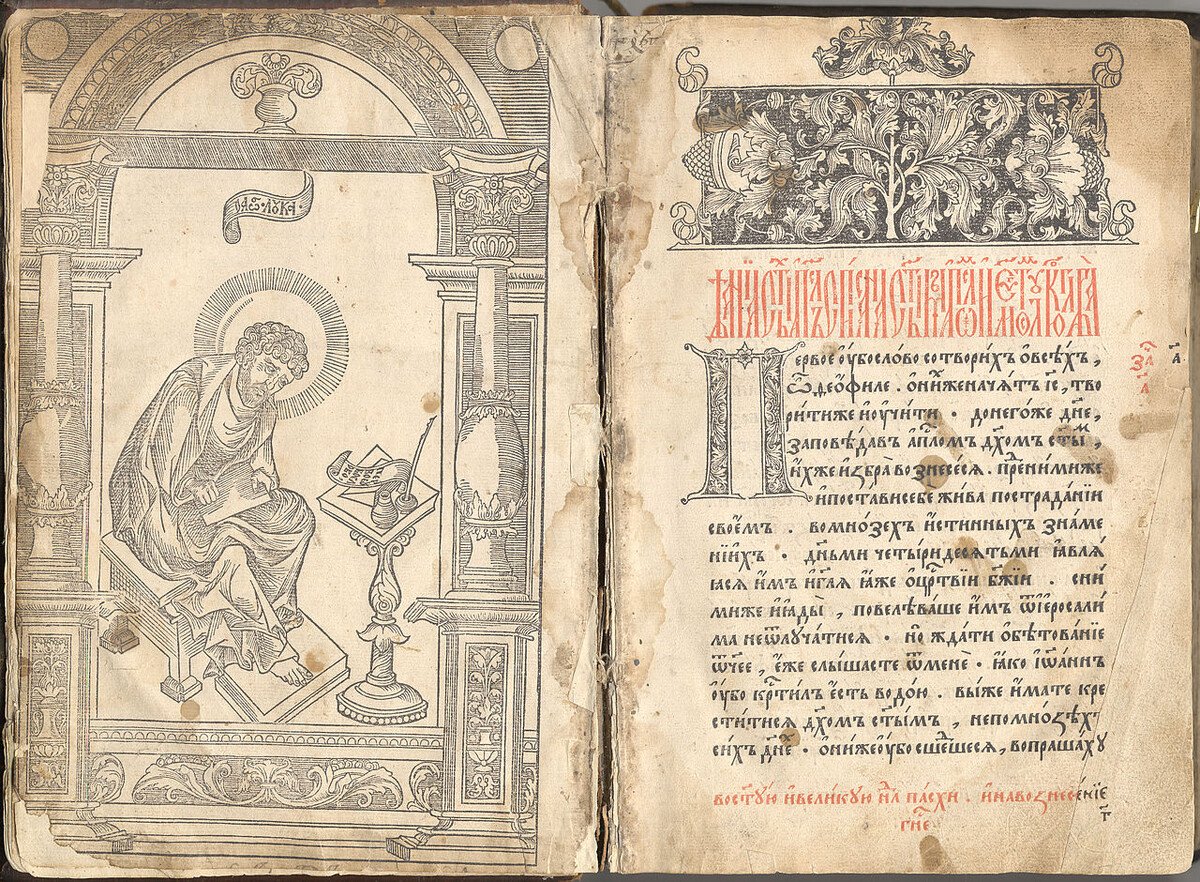 лꙋка
Первое ᲂу҆бо слово сотворихъ ѡ҆ всѣхъ,
ѽ део́филе. ѡ҆ ниⷯже начатъ і҆с, тво
рити же и҆ ᲂу҆чити. до него же дн҃е,
заповѣдавъ а҆пⷭ҇лом дх҃омъ ст҃ыⷨ,
и҆хже и҆збра вознесесѧ. преⷣ ними же
и҆ постави себе жива по страданїи
своемъ. во мнозехъ и҆стинныхъ знаме
нїихъ. дн҃ьми четыридесѧтьми ꙗ҆влѧ
ѧсѧ и҆мъ и҆ гл҃ѧ ꙗ҆же ѡ҆ црⷭ҇твїи бж҃їи. сни
ми же и҆ ꙗ҆ды, повелѣваше и҆мъ ѿ і҆еросали
ма не ѿлучатисѧ. но ждати ѡ҆бѣтованїе
ѿч҃ее, е҆же слышасте ѿ мене. ꙗ҆ко і҆ѡ҆аннъ
ᲂу҆бо крⷭ҇тил е҆сть водою. вы же и҆мате кре
ститисѧ дх҃омъ ст҃ымъ, не по мноѕѣхъ
сихъ дн҃е. ѡ҆ни же ᲂу҆бо сшеⷣшесѧ, вопрашахꙋ
во ст҃ꙋю и҆ великꙋю нлⷣ пасхи. и҆ на вознесенїе
гн҃е